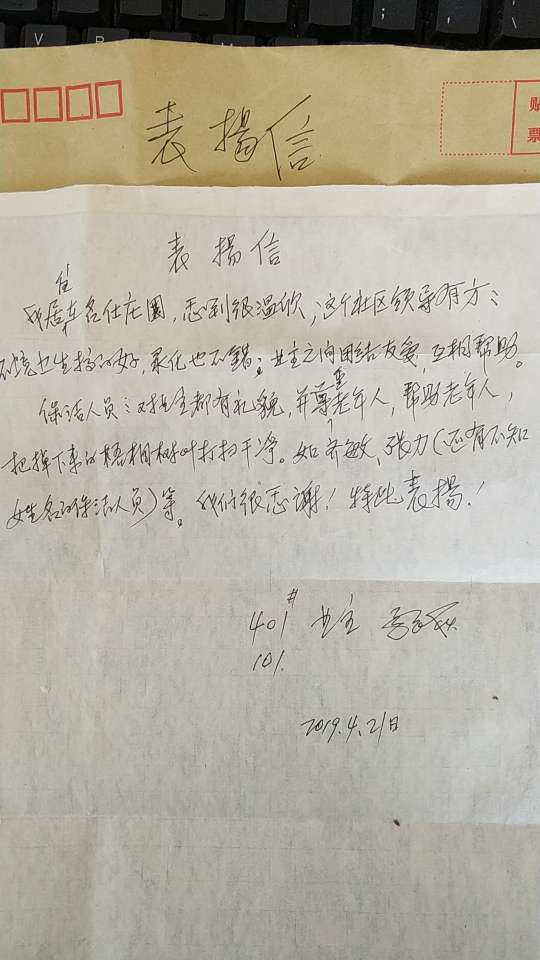 贴
票
表揚信
表揚信
我居住在名仕庄園,感到很温欣,这个社区领导有方:
环境卫生搞的好,绿化也不錯;业主之间团结友爱,互相帮助。
保洁人员:对业主都有礼貌,并尊重老年人,帮助老年人,
把掉下来的梧桐树叶打扫干净。如齐敏、張力(还有不知
姓名的保洁人员)等。我们很感谢!特此表揚!
401# 业主
101.
2019.4.21日